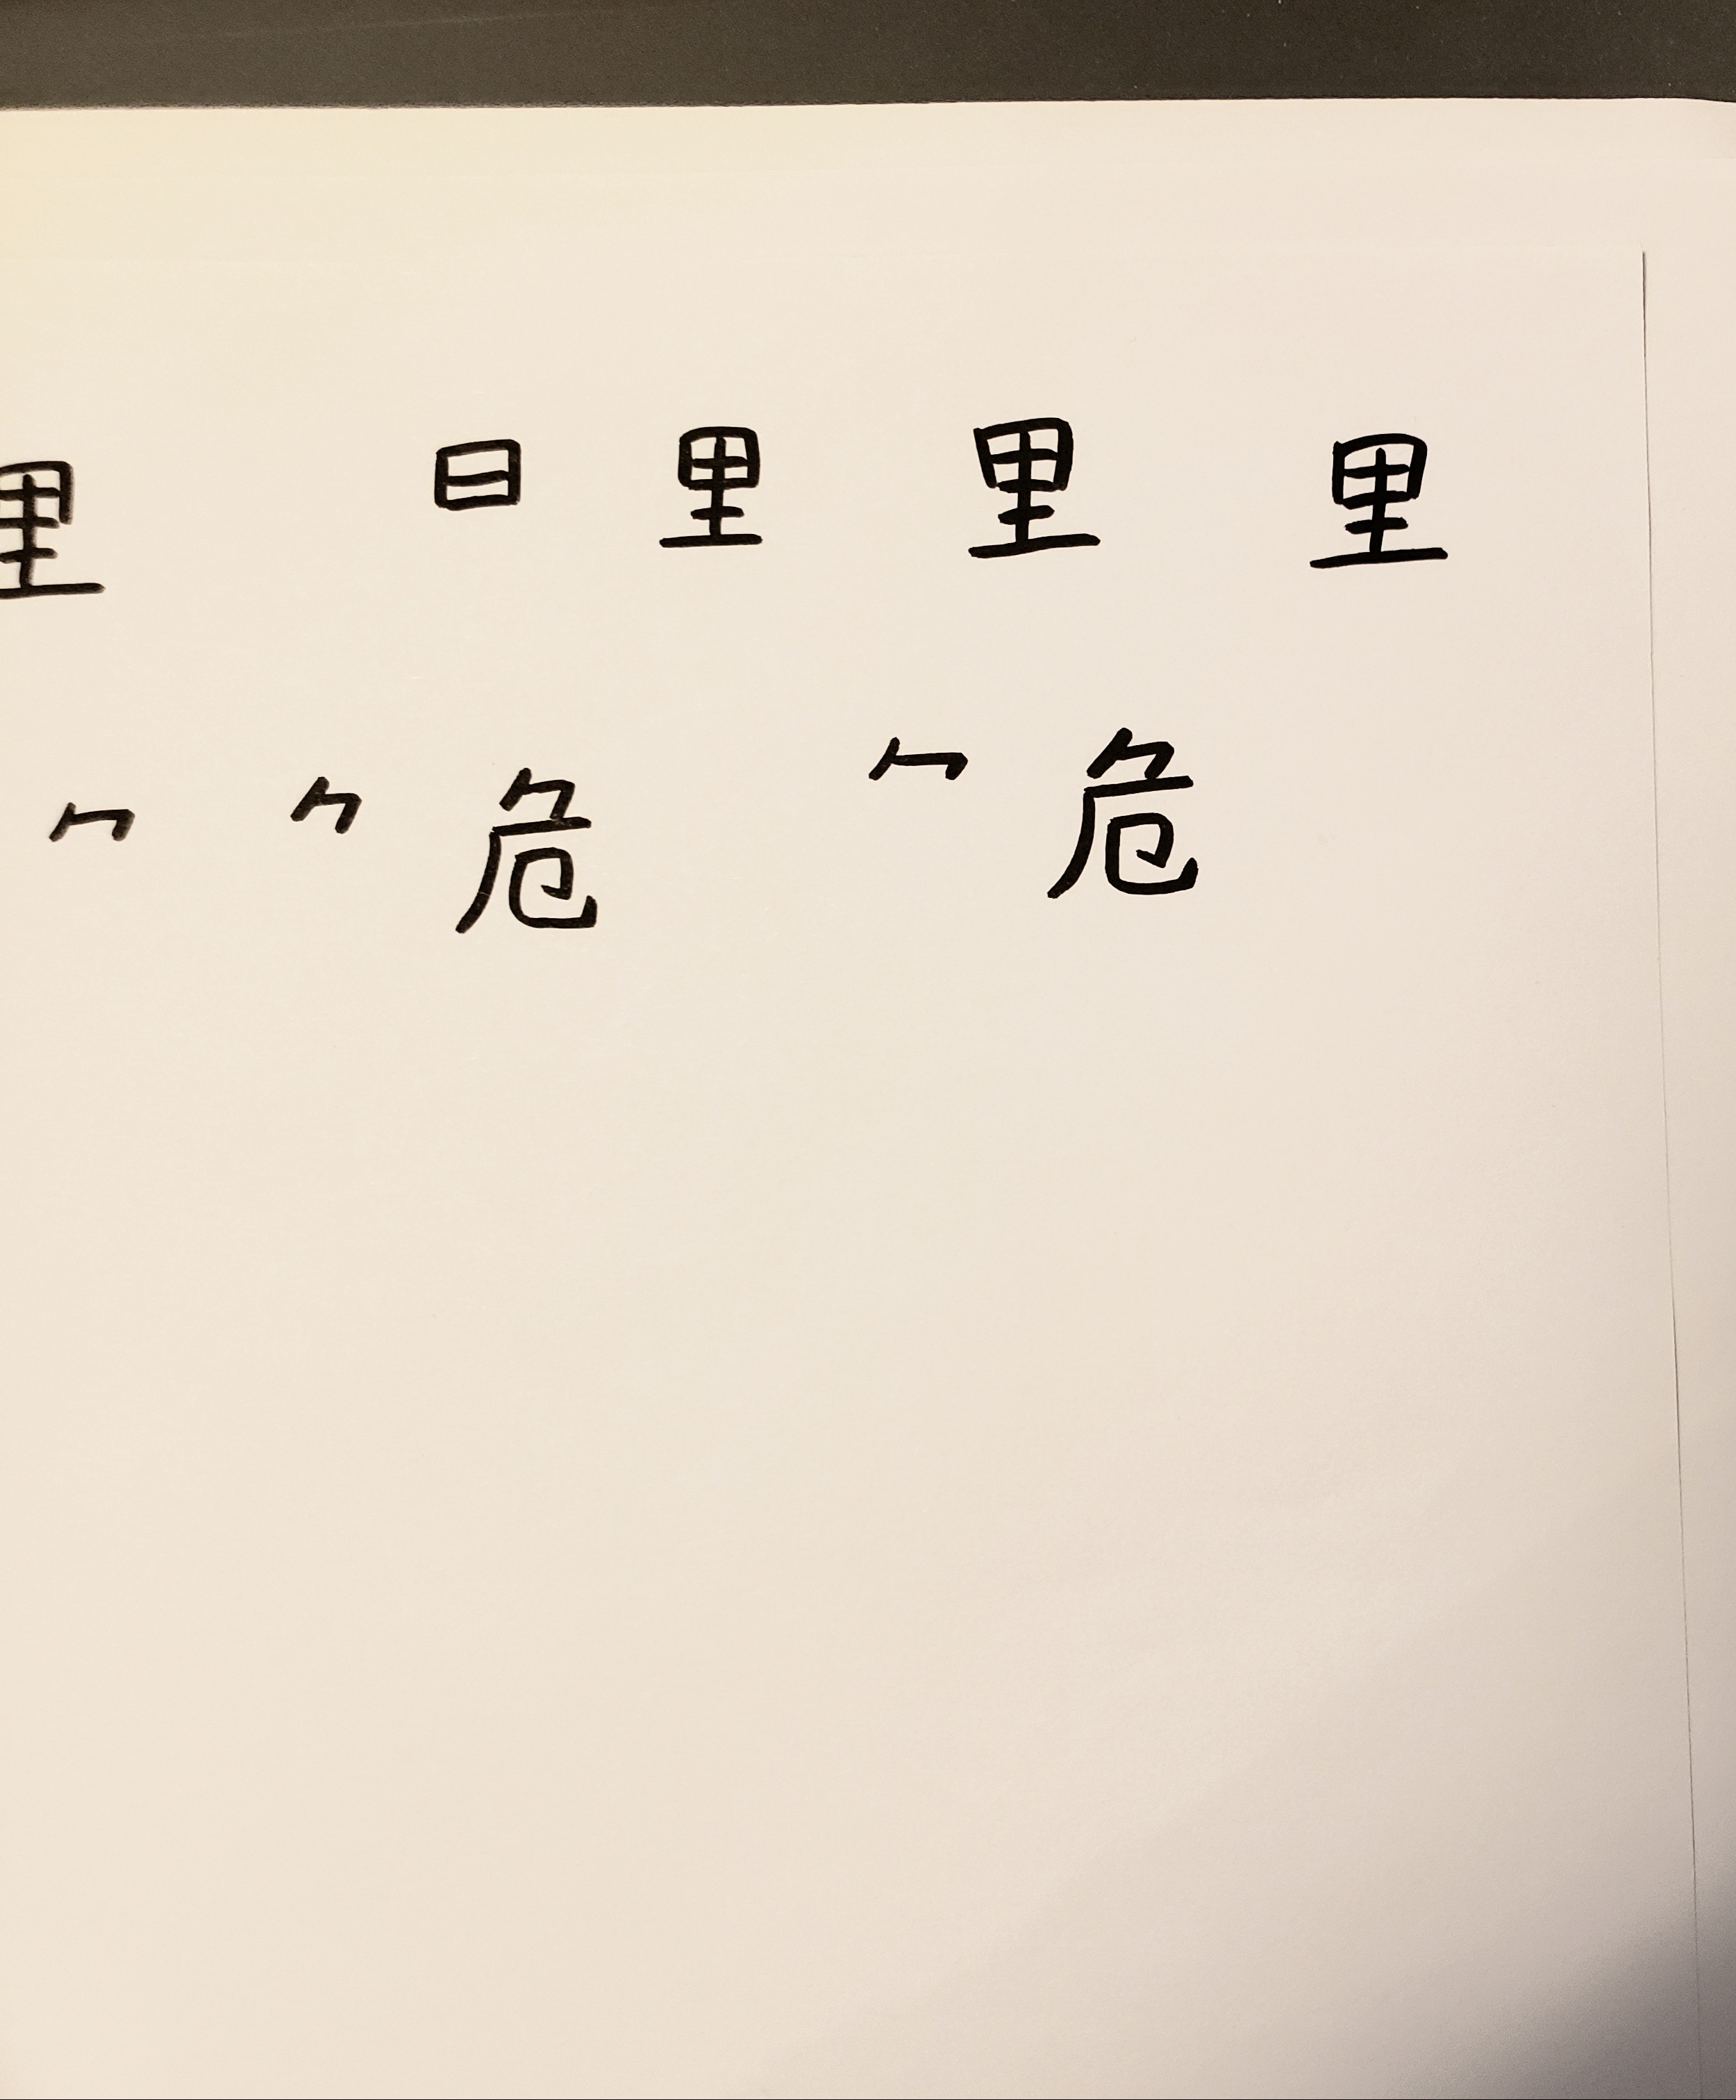 里 日 里 里 里
⺈ ⺈ 危 ⺈ 危